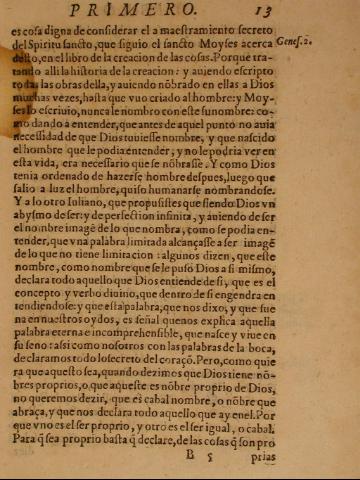 PRIMERO. 13
es cosa digna de considerar el a maestramiento secreto
del Spiritu sancto, que siguio el sancto Moyses acerca
desto, en el libro de la creacion de las cosas. Porque tra-
Genes. 2.
tando alli la historia de la creacion: y auiendo escripto
todas las obras della, y auiendo nõbrado en ellas a Dios
muchas vezes, hasta que vuo criado al hombre: y Moy-
ses lo escriuio, nunca le nombro con este su nombre: co-
mo dando a entender, que antes de aquel punto no auia
necessidad de que Dios tuuiesse nombre, y que nascido
el hombre que le podia entender, y no le podria ver en
esta vida, era necessario que se nõbrasse. Y como Dios
tenia ordenado de hazerse hombre despues, luego que
salio a luz el hombre, quiso humanarse nombrandose.
Y a lo otro Iuliano, que propusistes que siendo Dios vn
abysmo de ser: y de perfection infinita, y auiendo de ser
el nombre imagẽ de lo que nombra, como se podia en-
tender, que vna palabra limitada alcançasse a ser imagẽ
de lo que no tiene limitacion: algunos dizen, que este
nombre, como nombre que se le puso Dios a si mismo,
declara todo aquello que Dios entiende de si, que es el
concepto y verbo diuino, que dentro de si engendra en
tendiendose: y que esta palabra, que nos dixo, y que sue
na en nuestros oydos, es señal que nos explica aquella
palabra eterna e incomprehensible, que nasce y viue en
su seno: assi como nosotros con las palabras de la boca,
declaramos todo lo secreto del coraçõ. Pero, como quie
ra que aquesto sea, quando dezimos que Dios tiene nõ-
bres proprios, o que aqueste es nõbre proprio de Dios,
no queremos dezir, que es cabal nombre, o nõbre que
abraça, y que nos declara todo aquello que ay en el. Por
que vno es el ser proprio, y otro es el ser igual, o cabal.
Para q̃ sea proprio basta q̃ declare, de las cosas q̃ son pro
B 5 prias